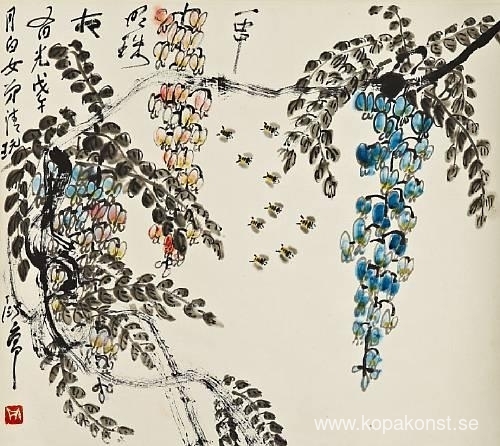 一串
明珠
夜
有光戊午
月白女弟清玩
www.kopakonst.se